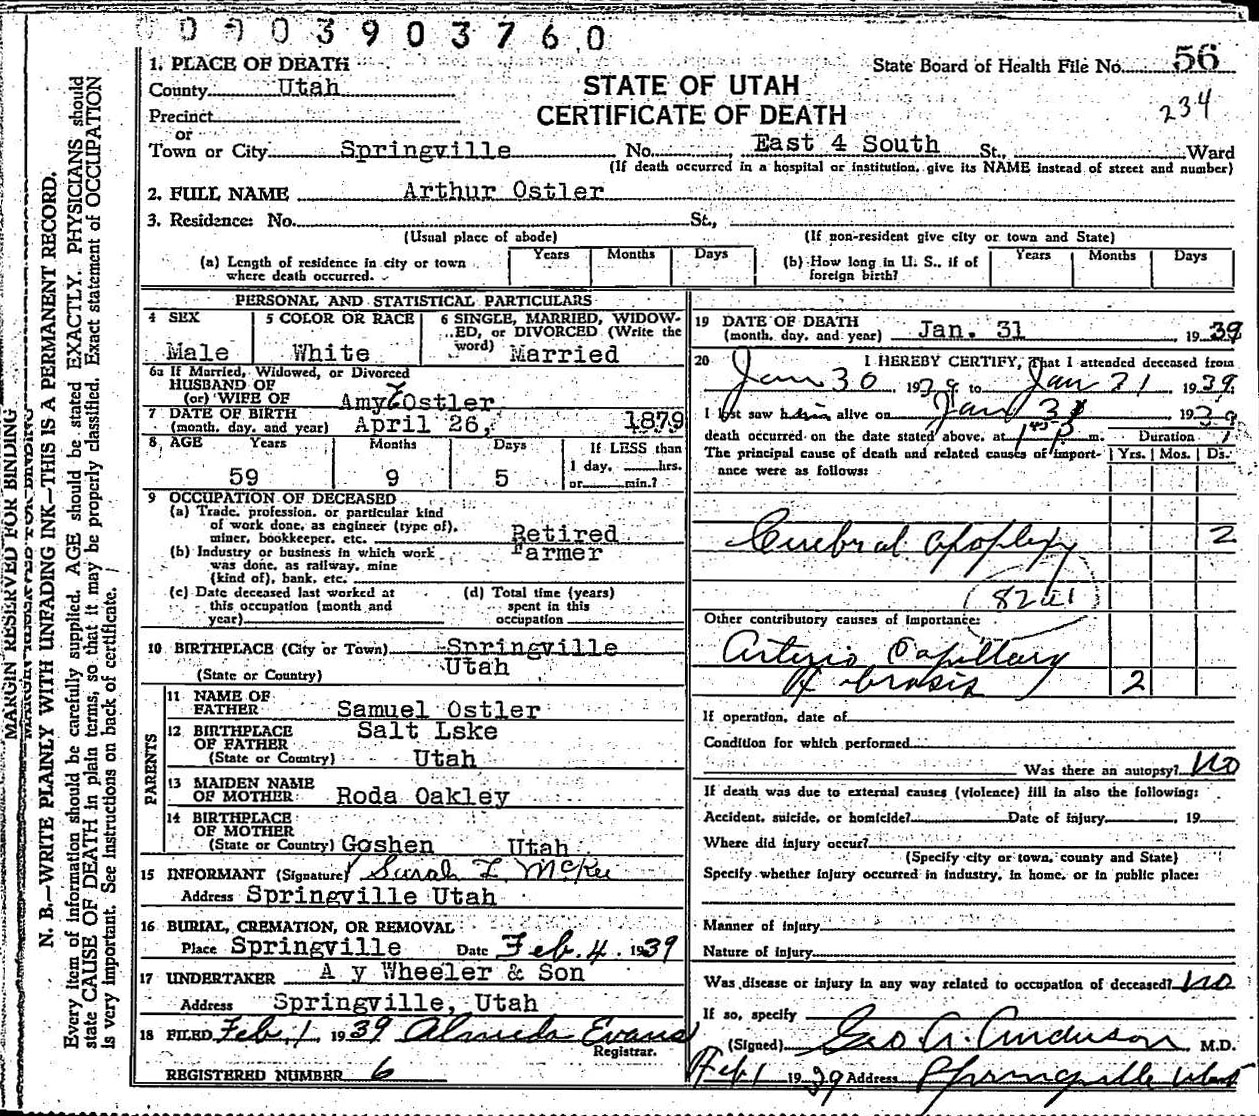 0 0 0 3 9 0 3 7 6 0
1. PLACE OF DEATH
County Utah
Precinct
or
Town or City Springville No. East 4 South St., Ward
(If death occurred in a hospital or institution, give its NAME instead of street and number)
STATE OF UTAH
CERTIFICATE OF DEATH
State Board of Health File No. 56
234
2. FULL NAME Arthur Ostler
3. Residence: No. St.,
(Usual place of abode) (If non-resident give city or town and State)
(a) Length of residence in city or town where death occurred. Years Months Days
(b) How long in U. S., if of foreign birth? Years Months Days
PERSONAL AND STATISTICAL PARTICULARS
4 SEX Male
5 COLOR OR RACE White
6 SINGLE, MARRIED, WIDOW-
ED, or DIVORCED (Write the
word) Married
6a If Married, Widowed, or Divorced
HUSBAND OF
(or) WIFE OF Amy Ostler
7 DATE OF BIRTH
(month, day, and year) April 26, 1879
8 AGE Years Months Days If LESS than
59 9 5 1 day, hrs.
or min.?
9 OCCUPATION OF DECEASED
(a) Trade, profession, or particular kind
of work done, as engineer (type of),
miner, bookkeeper, etc. Retired
Farmer
(b) Industry or business in which work
was done, as railway, mine
(kind of), bank, etc.
(c) Date deceased last worked at
this occupation (month and
year)
(d) Total time (years)
spent in this
occupation
10 BIRTHPLACE (City or Town) Springville
(State or Country) Utah
PARENTS
11 NAME OF
FATHER Samuel Ostler
12 BIRTHPLACE
OF FATHER Salt Lske
(State or Country) Utah
13 MAIDEN NAME
OF MOTHER Roda Oakley
14 BIRTHPLACE
OF MOTHER
(State or Country) Goshen Utah
15 INFORMANT (Signature) Sarah McKee
Address Springville Utah
16 BURIAL, CREMATION, OR REMOVAL
Place Springville Date Feb. 4. 1939
17 UNDERTAKER A y Wheeler & Son
Address Springville, Utah
18 FILED Feb. 1 1939 Almeda Evans
Registrar.
REGISTERED NUMBER 6
19 DATE OF DEATH
(month, day, and year) Jan. 31 1939
20 I HEREBY CERTIFY, That I attended deceased from
Jan 30 1939 to Jan 31 1939
I last saw him alive on Jan 31 1939
death occurred on the date stated above, at 1 45 P m.
Duration
The principal cause of death and related causes of import-
ance were as follows: Yrs. Mos. Ds.
Cerebral apoplexy 2
82a1
Other contributory causes of importance:
Arterio Capillary
Fibrosis 2
If operation, date of
Condition for which performed
Was there an autopsy? no
If death was due to external causes (violence) fill in also the following:
Accident, suicide, or homicide? Date of injury 19
Where did injury occur?
(Specify city or town, county and State)
Specify whether injury occurred in industry, in home, or in public place:
Manner of injury
Nature of injury
Was disease or injury in any way related to occupation of deceased? no
If so, specify
(Signed) Geo A. Anderson M.D.
Feb 1 1939 Address Springville Utah
MARGIN RESERVED FOR BINDING
N. B.—WRITE PLAINLY WITH UNFADING INK—THIS IS A PERMANENT RECORD.
Every item of information should be carefully supplied. AGE should be stated EXACTLY. PHYSICIANS should
state CAUSE OF DEATH in plain terms, so that it may be properly classified. Exact statement of OCCUPATION
is very important. See instructions on back of certificate.